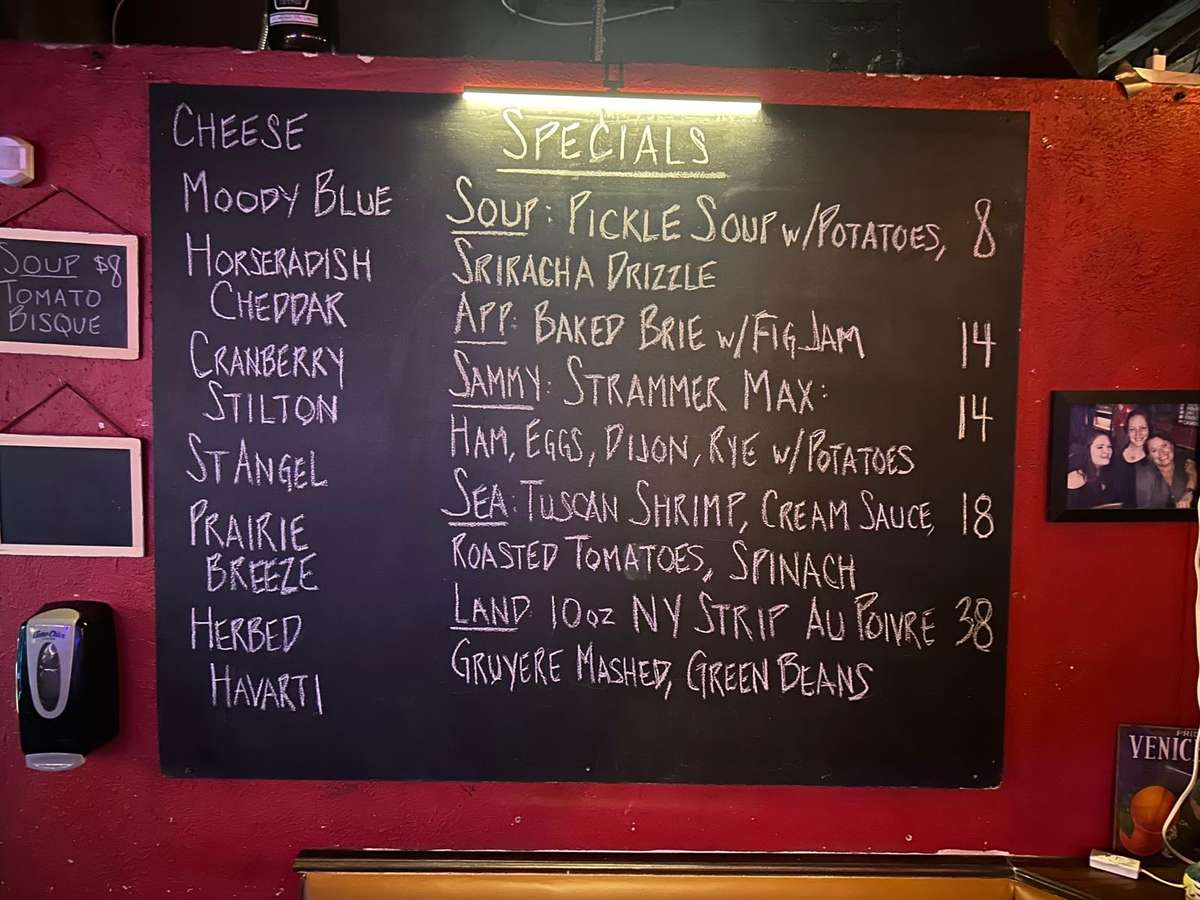 CHEESE
MOODY BLUE
HORSERADISH
CHEDDAR
CRANBERRY
STILTON
ST ANGEL
PRAIRIE
BREEZE
HERBED
HAVARTI
SPECIALS
SOUP: PICKLE SOUP W/POTATOES, 8
SRIRACHA DRIZZLE
APP: BAKED BRIE W/FIG JAM 14
SAMMY: STRAMMER MAX: 14
HAM, EGGS, DIJON, RYE W/POTATOES
SEA: TUSCAN SHRIMP, CREAM SAUCE, 18
ROASTED TOMATOES, SPINACH
LAND: 10oz NY STRIP AU POIVRE 38
GRUYERE MASHED, GREEN BEANS
SOUP $8
TOMATO
BISQUE
VENIC